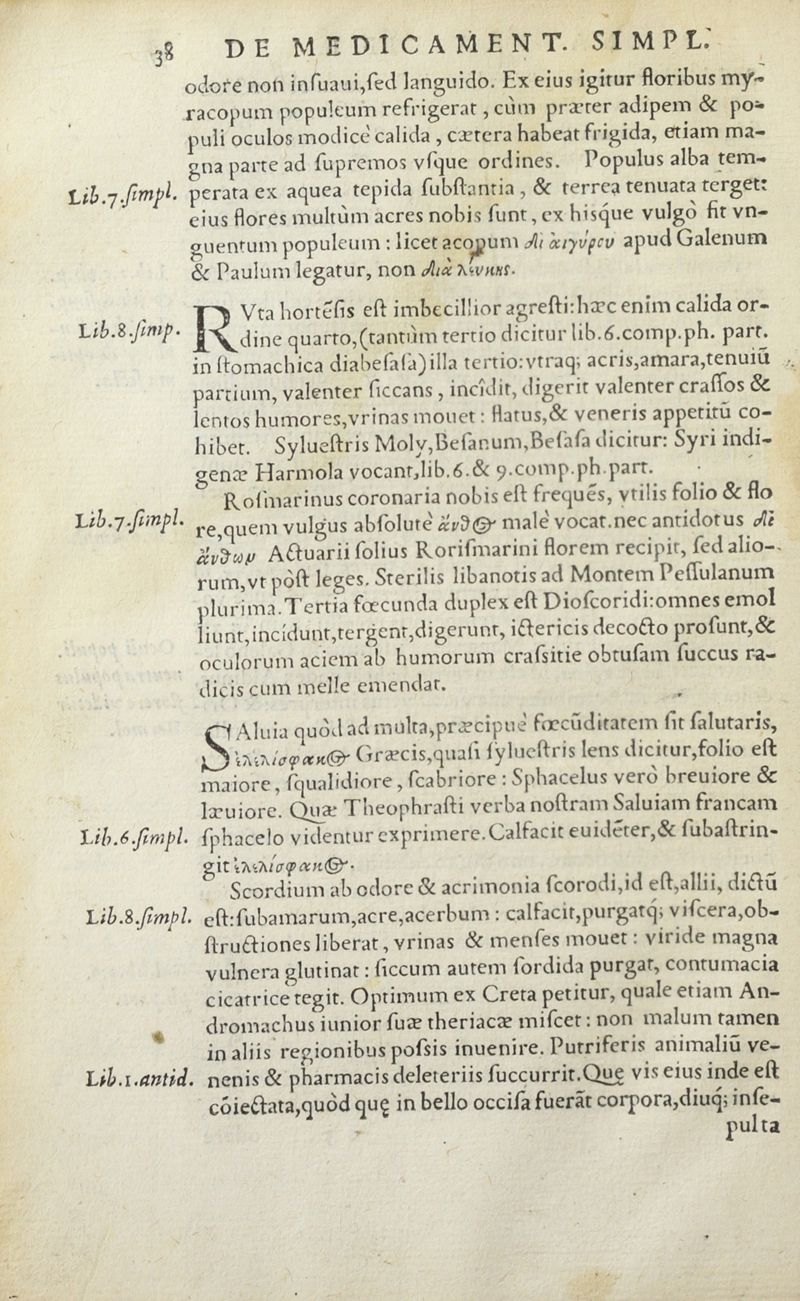 38 DE MEDICAMENT. SIMPL.
odore non inſuaui,ſed languido. Ex eius igitur floribus my-
racopum populeum refrigerat, cùm præter adipem & po-
puli oculos modicè calida, cætera habeat frigida, etiam ma-
gna parte ad ſupremos vſque ordines. Populus alba tem-
Lib.7.ſimpl. perata ex aquea tepida ſubſtantia, & terrea tenuata terget:
eius flores multùm acres nobis ſunt, ex hisque vulgò fit vn-
guentum populeum : licet acopum δι αἰγύρου apud Galenum
& Paulum legatur, non διὰ λεύκης.
RVta hortẽſis eſt imbecillior agreſti:hæc enim calida or-
Lib.8.ſimp. dine quarto,(tantùm tertio dicitur lib.6.comp.ph. part.
in ſtomachica diabeſaſa)illa tertio:vtraq; acris,amara,tenuiũ
partium, valenter ſiccans, incîdit, digerit valenter craſſos &
lentos humores,vrinas mouet : flatus,& veneris appetitũ co-
hibet. Sylueſtris Moly,Beſanum,Beſaſa dicitur: Syri indi-
genæ Harmola vocant,lib.6.& 9.comp.ph.part.
Roſmarinus coronaria nobis eſt frequẽs, vtilis folio & flo
Lib.7.ſimpl. re,quem vulgus abſolutè ἄνθος malè vocat.nec antidotus δι
ἄνθων Actuarii ſolius Roriſmarini florem recipit, ſed alio-
rum,vt pòſt leges. Sterilis libanotis ad Montem Peſſulanum
plurima. Tertia fœcunda duplex eſt Dioſcoridi:omnes emol
liunt,incídunt,tergent,digerunt, ictericis decocto proſunt,&
oculorum aciem ab humorum craſsitie obtuſam ſuccus ra-
dicis cum melle emendat.
SAluia quòd ad multa,præcipuè fœcũditatem ſit ſalutaris,
ἐλελίσφακος Græcis,quaſi ſylueſtris lens dicitur,folio eſt
maiore, ſqualidiore, ſcabriore : Sphacelus verò breuiore &
læuiore. Quæ Theophraſti verba noſtram Saluiam francam
Lib.6.ſimpl. ſphacelo videntur exprimere. Calfacit euidẽter,& ſubaſtrin-
git ἐλελίσφακος.
Scordium ab odore & acrimonia ſcorodi,id eſt,allii, dictũ
Lib.8.ſimpl. eſt:ſubamarum,acre,acerbum : calfacit,purgatq; viſcera,ob-
ſtructiones liberat, vrinas & menſes mouet : viride magna
vulnera glutinat : ſiccum autem ſordida purgat, contumacia
cicatrice tegit. Optimum ex Creta petitur, quale etiam An-
dromachus iunior ſuæ theriacæ miſcet : non malum tamen
in aliis regionibus poſsis inuenire. Putriferis animaliũ ve-
Lib.1.antid. nenis & pharmacis deleteriis ſuccurrit. Quę vis eius inde eſt
cõiectata,quòd quę in bello occiſa fuerãt corpora,diuq; inſe-
pulta